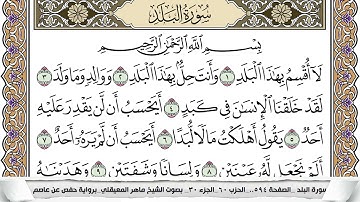 سُورَةُ الْبَلَدِ
بِسْمِ اللَّهِ الرَّحْمَٰنِ الرَّحِيمِ
لَا أُقْسِمُ بِهَٰذَا الْبَلَدِ ١ وَأَنتَ حِلٌّ بِهَٰذَا الْبَلَدِ ٢ وَوَالِدٍ وَمَا وَلَدَ ٣
لَقَدْ خَلَقْنَا الْإِنسَانَ فِي كَبَدٍ ٤ أَيَحْسَبُ أَن لَّن يَقْدِرَ عَلَيْهِ
أَحَدٌ ٥ يَقُولُ أَهْلَكْتُ مَالًا لُّبَدًا ٦ أَيَحْسَبُ أَن لَّمْ يَرَهُ أَحَدٌ ٧
أَلَمْ نَجْعَل لَّهُ عَيْنَيْنِ ٨ وَلِسَانًا وَشَفَتَيْنِ ٩ وَهَدَيْنَاهُ
سورة البلد _الصفحة ٥٩٤.. الحزب ٦٠_الجزء ٣٠.. بصوت الشيخ ماهر المعيقلي_برواية حفص عن عاصم